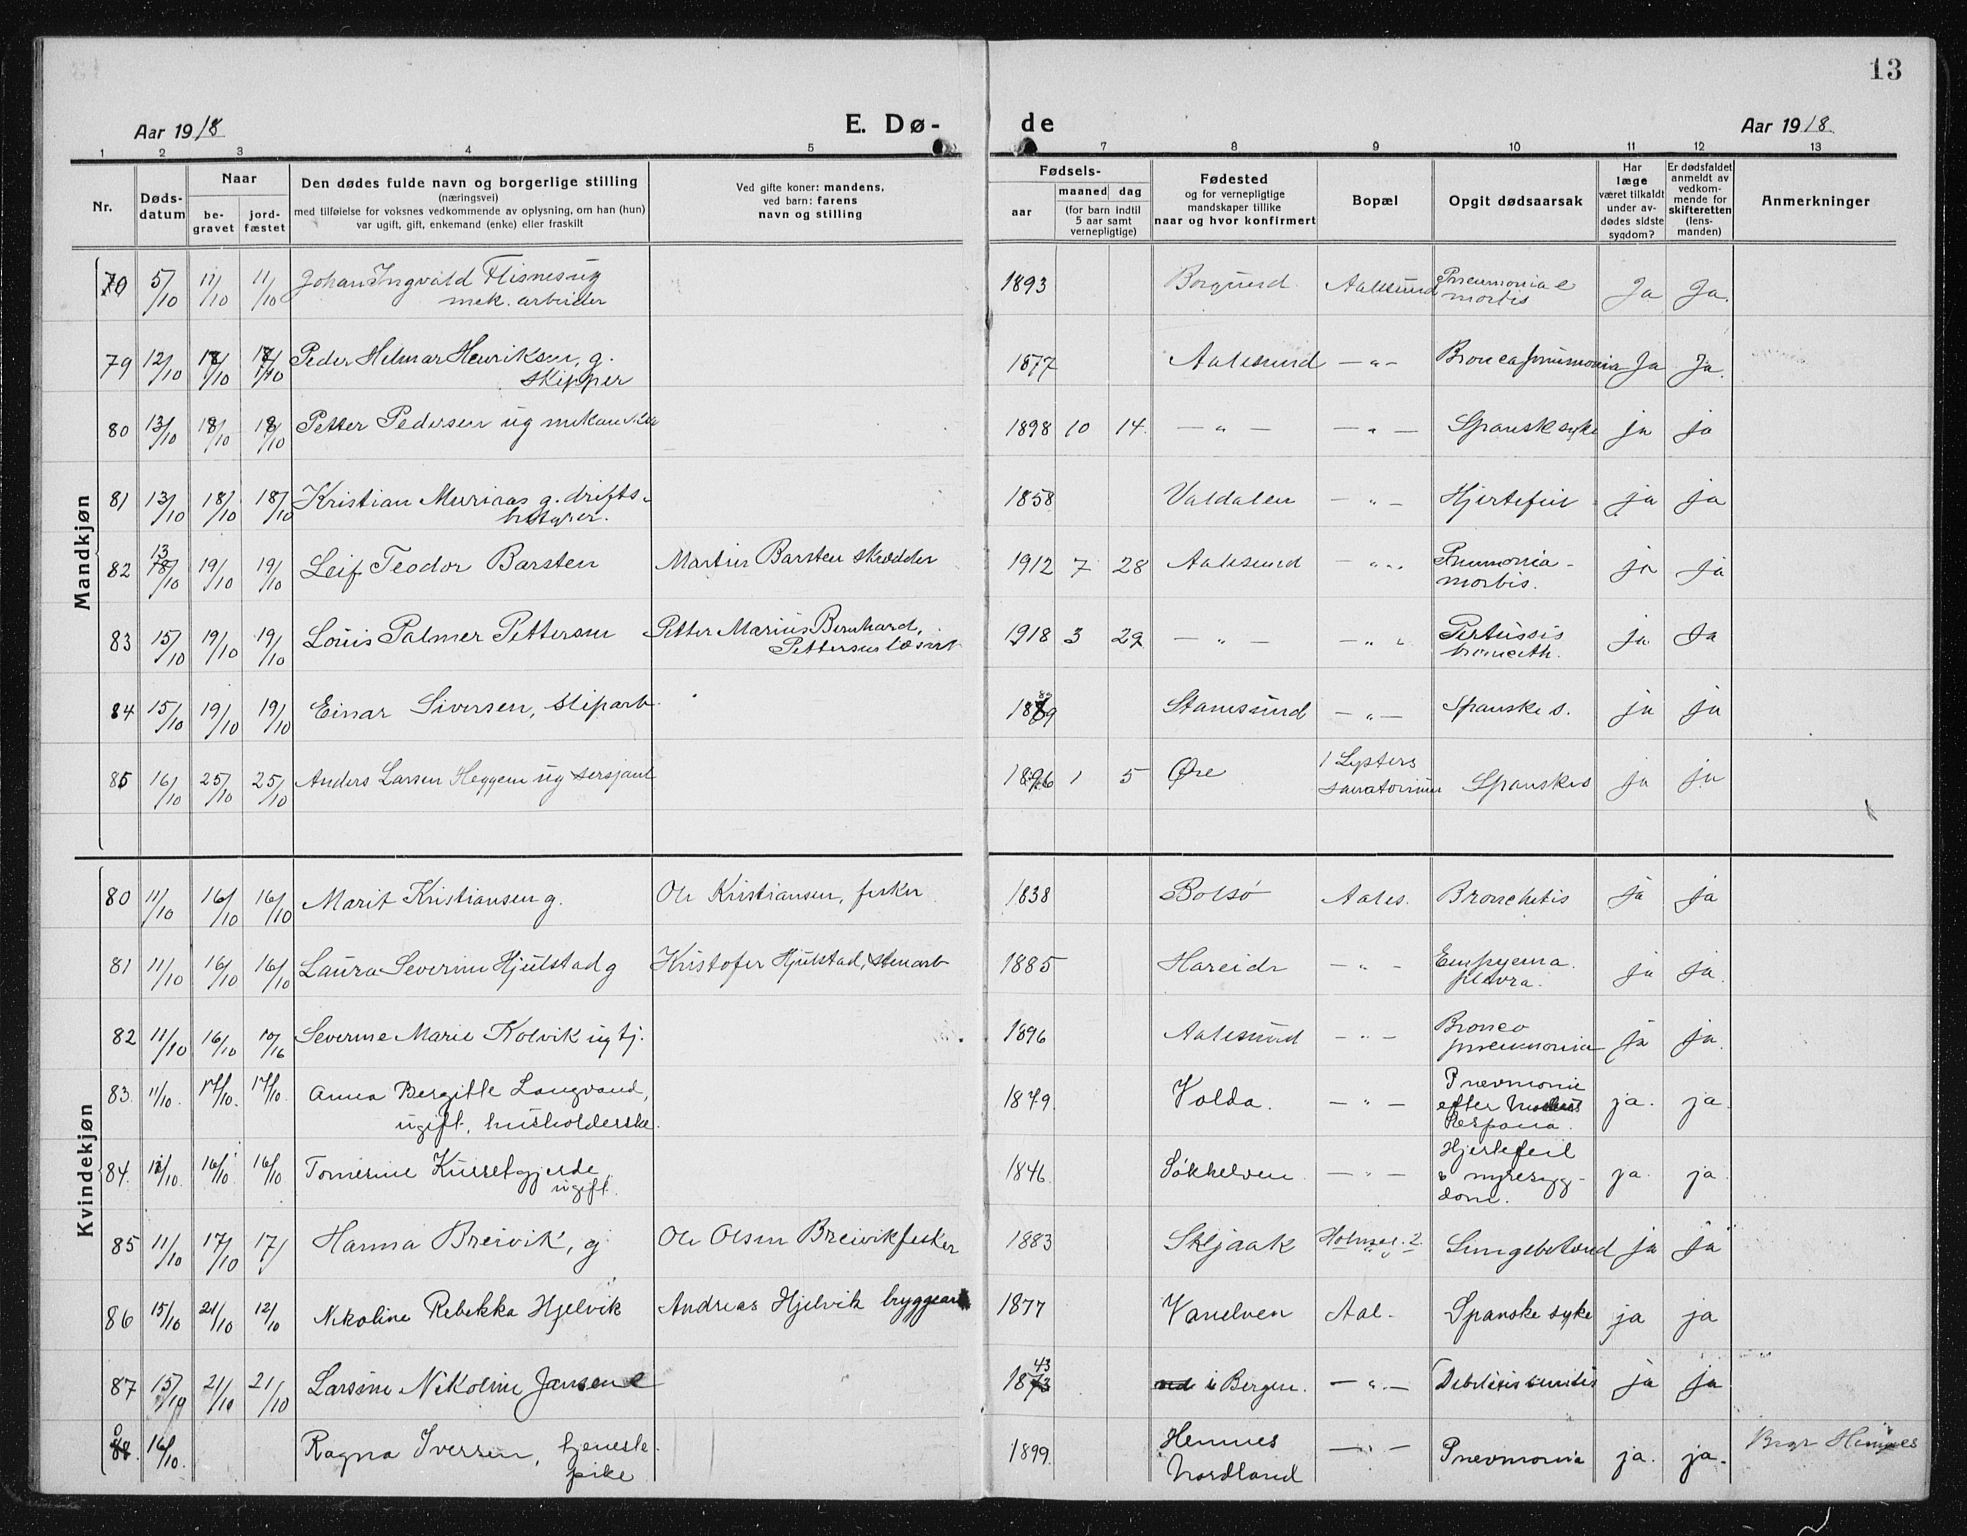 13
Aar 1918
E. Dø-
de
Aar 1918.
1 2 3 4 5 7 8 9 10 11 12 13
Nr.
Døds-
datum
Naar
be-
gravet
jord-
fæstet
Den dødes fulde navn og borgerlige stilling
(næringsvei)
med tilføielse for voksnes vedkommende av oplysning, om han (hun)
var ugift, gift, enkemand (enke) eller fraskilt
Ved gifte koner: mandens,
ved barn: farens
navn og stilling
Fødsels-
aar
maaned
dag
(for barn indtil
5 aar samt
vernepligtige)
Fødested
og for vernepligtige
mandskaper tillike
naar og hvor konfirmert
Bopæl
Opgit dødsaarsak
Har
læge
været tilkaldt
under av-
dødes sidste
sygdom?
Er dødsfaldet
anmeldt av
vedkom-
mende for
skifteretten
(lens-
manden)
Anmerkninger
Mandkjøn
5/10 11/10 11/10 Johan Ingvald Flisnes ug 1893 Borgund Aalesund Pneumonia e Ja Ja.
mek. arbeider morbis
79 12/10 18/10 Peder Hilmar Henriksen, g. 1877 Aalesund — „ — Broncopneumonia Ja Ja.
skipper
80 13/10 18/10 18/10 Petter Pedersen ug 1898 10 14. — „ — — „ — Spansk syke ja ja
81 13/10 18/10 18/10 Kristian g. drifts- 1858 Valdalen — „ — Hjertefeil ja ja
bestyrer.
82 13/10 19/10 19/10 Leif Teodor Barsten Martin Barsten skrædder 1912 7 28 Aalesund — „ — Pneumonia - ja ja
morbis.
83 15/10 19/10 19/10 Louis Palmer Pettersen Petter Marius Bernhard, 1918 3 29 — „ — — „ — Pertussis ja Ja
Pettersen
84 15/10 19/10 19/10 Einar Siversen, sliparb. 1889 Stamsund — „ — Spanske s. ja ja
85 16/10 25/10 25/10 Anders Larsen Heggem ug sersjant 1896 1 5 Øre Lysters Spanske s ja ja
sanatorium
Kvindekjøn
80 11/10 16/10 16/10 Marit Kristiansen g. Ole Kristiansen, fisker 1838 Bolsø Aales. Bronchitis ja ja
81 11/10 16/10 16/10 Laura Severine Hjulstad g Kristofer Hjulstad, stenarb 1885 Hareide — „ — Empyema ja ja.
plevra.
82 11/10 16/10 10/16 Severine Marie Kolvik ug tj. 1896 Aalesund — „ — Bronco ja ja.
pneumonia
83. 11/10. 17/10. 17/10. Anna Bergitte Langvand, 1849. Volda. — „ — Pnevmonie ja. ja.
ugift, husholderske. efter
84. 11/10. 16/10 16/10 Tomerine 1846. Søkkelven. — „ — Hjertefeil ja. ja.
ugift. & nyresyg-
dom.
85 11/10 17/10 17/ Hanna Breivik, g Ole Olsen Breivik fisker 1883 Skjaak 2. Lungebetænd ja ja
86 15/10 21/10 12/10 Nikoline Rebekka Hjelvik Andreas Hjelvik bryggearb 1877 Vanelven Aal. Spanske syke ja ja
87 15/10 21/10 21/10 Larsine Nikoline Jansen 1843 i Bergen. — „ — Debilitis senilis ja ja
88. 16/10. Ragna Iversen, tjeneste- 1899. Hemnes — „ — Pnevmonia ja. ja. Begr Hemnes
pike Nordland